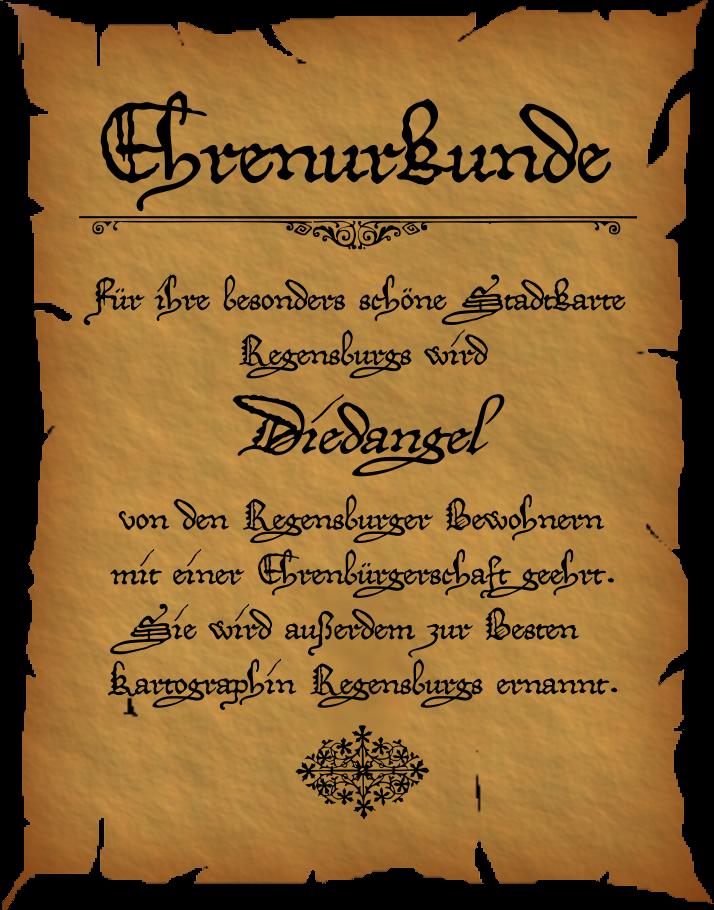 Ehrenurkunde
Für ihre besonders schöne Stadtkarte
Regensburgs wird
Diedangel
von den Regensburger Bewohnern
mit einer Ehrenbürgerschaft geehrt.
Sie wird außerdem zur Besten
Kartographin Regensburgs ernannt.